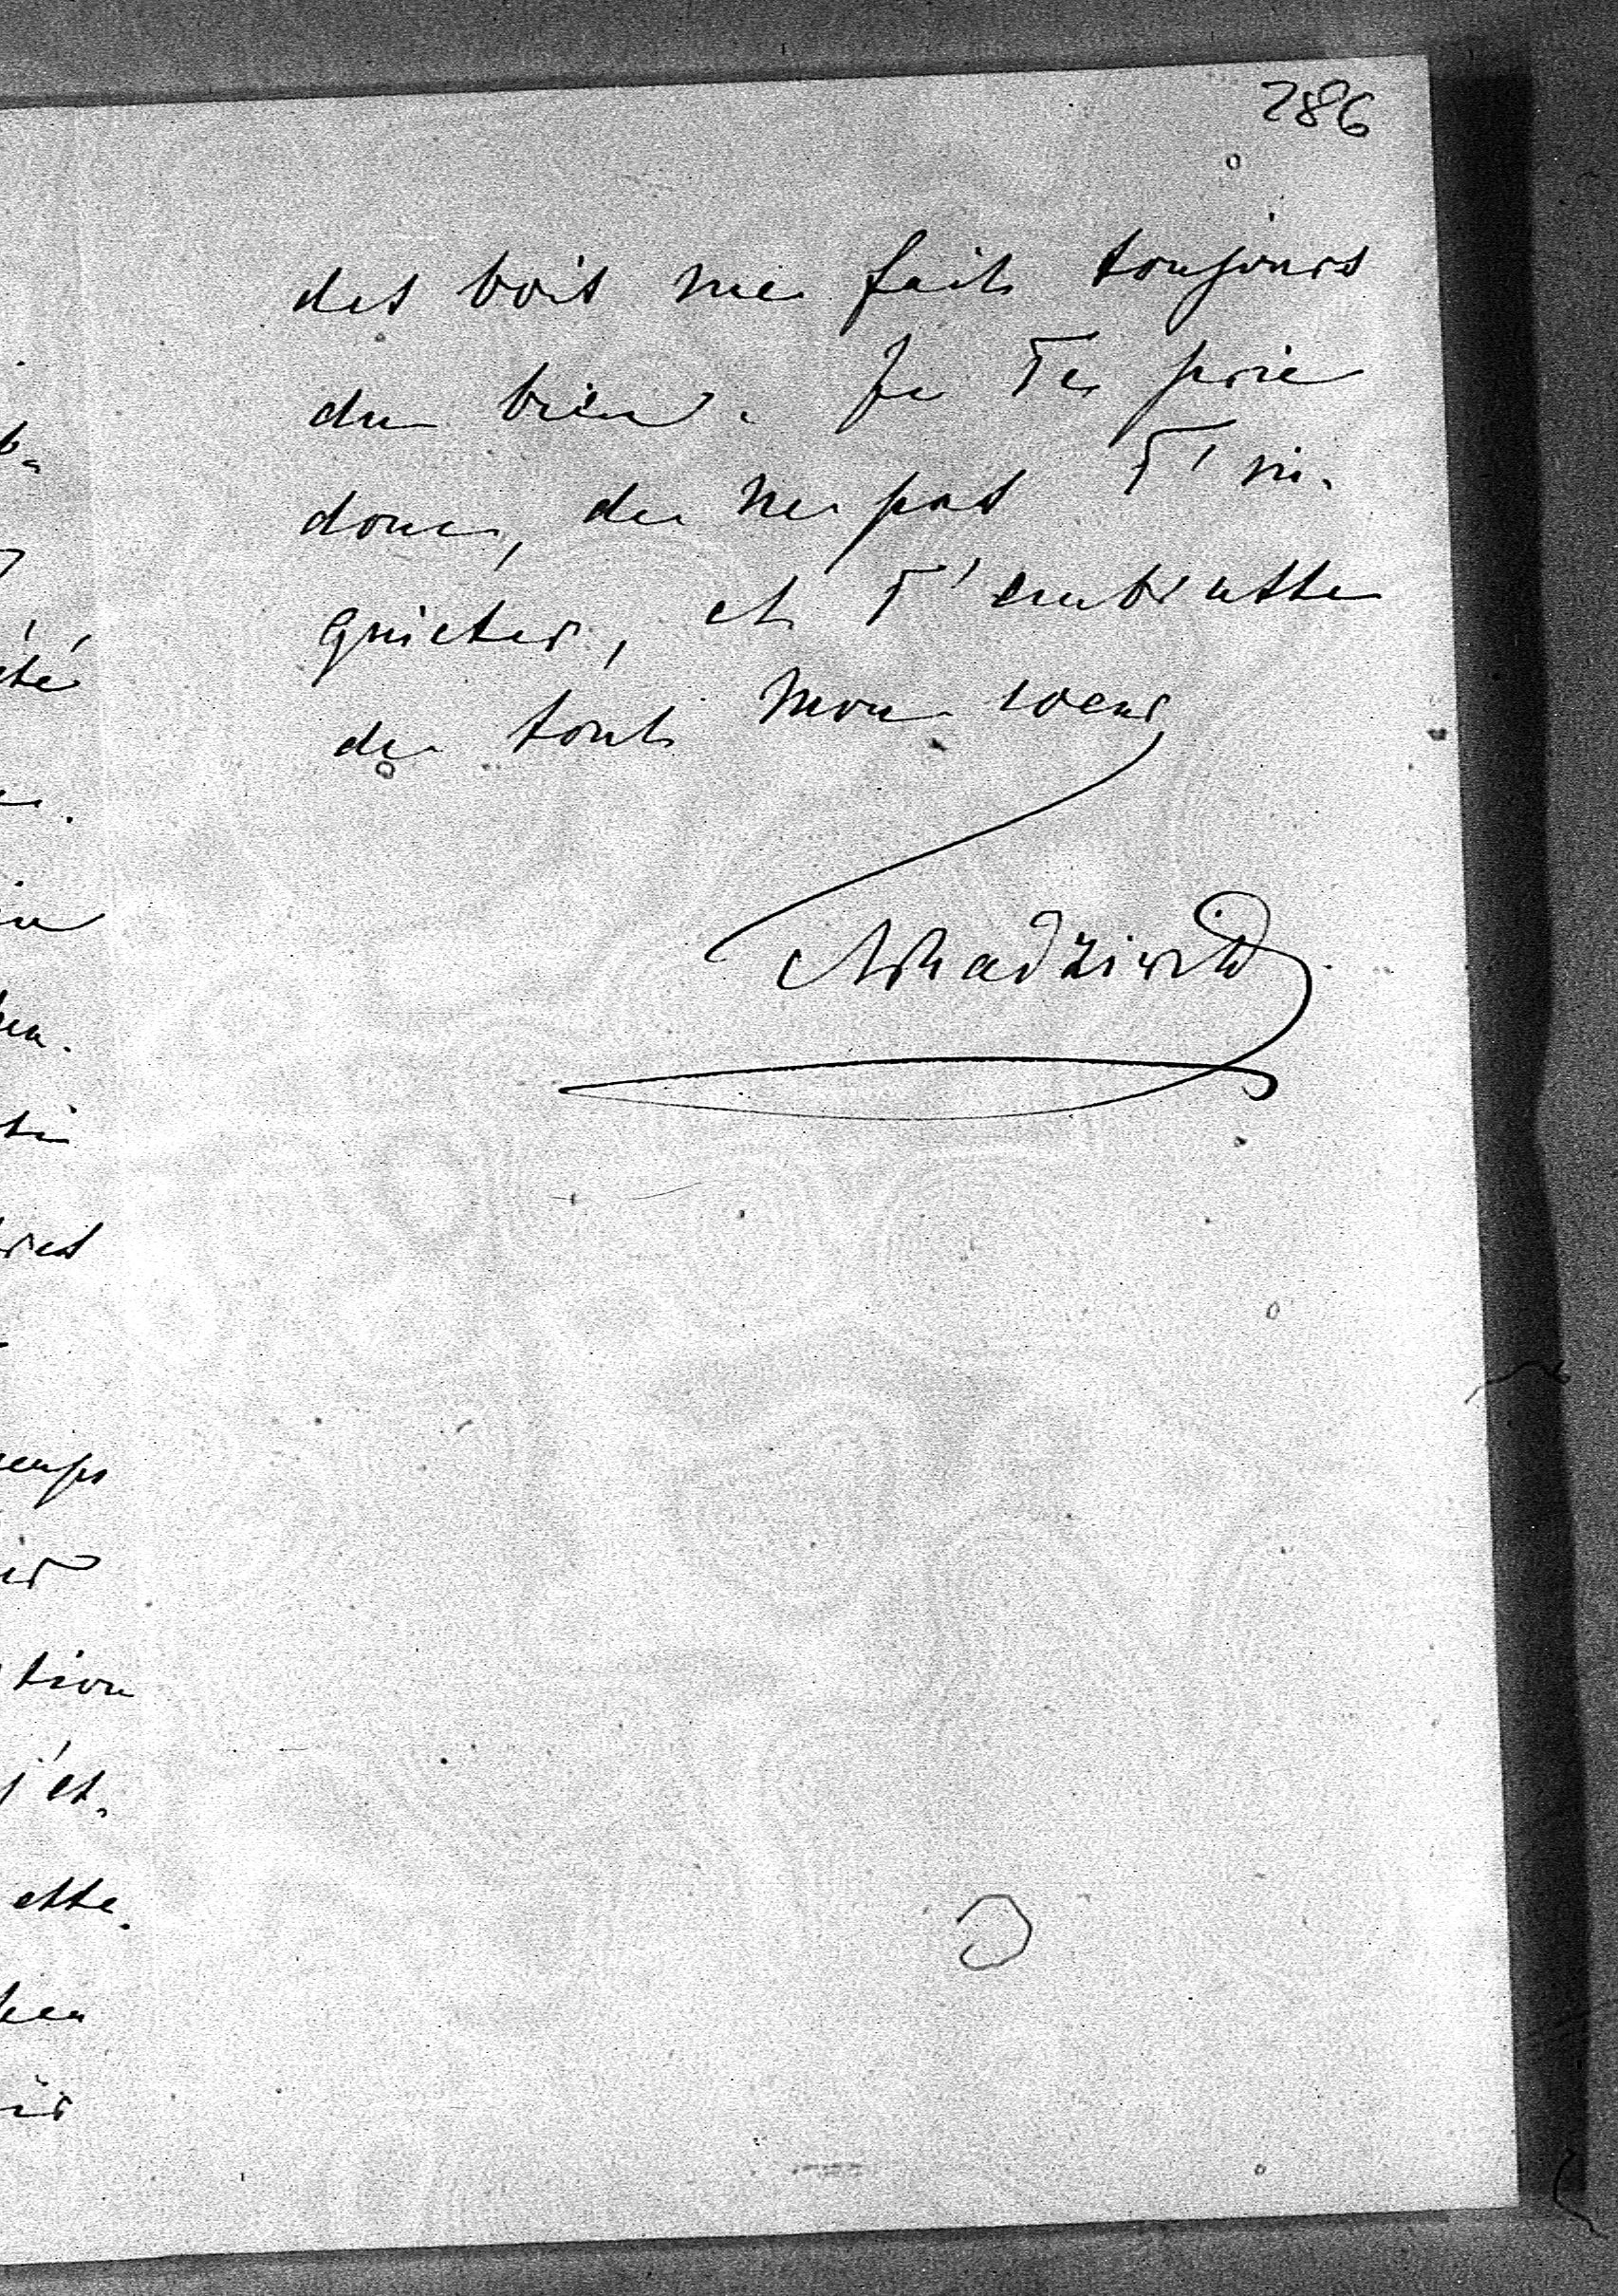 286
des bois me fait toujours
du bien. Je Te prie
donc, de ne pas T'in-
quieter, et T'embrasse
de tout mon coeur
ARadziwiłł
té
tion
j'es-